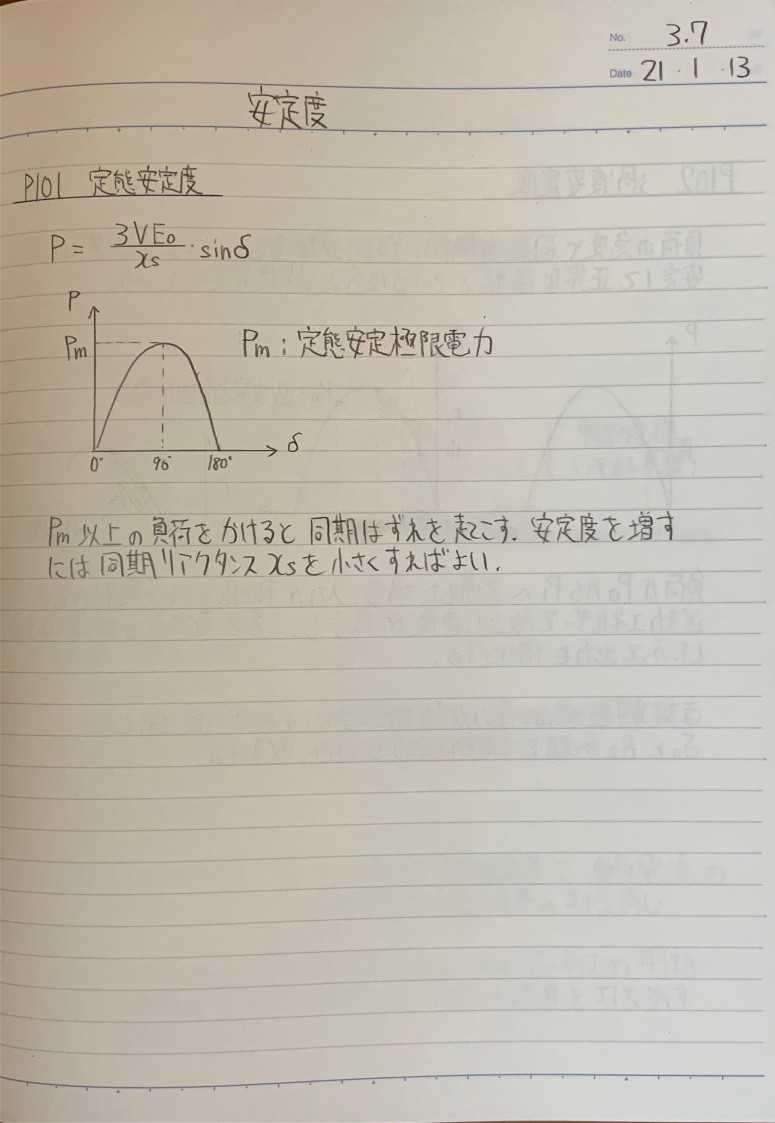 No. 3.7
Date 21 . 1 . 13
安定度
P101 定態安定度
P = 3VE₀/xs · sinδ
P
Pm
Pm : 定態安定極限電力
δ
0° 90° 180°
Pm以上の負荷をかけると同期はずれを起こす. 安定度を増す
には同期リアクタンスxsを小さくすればよい.